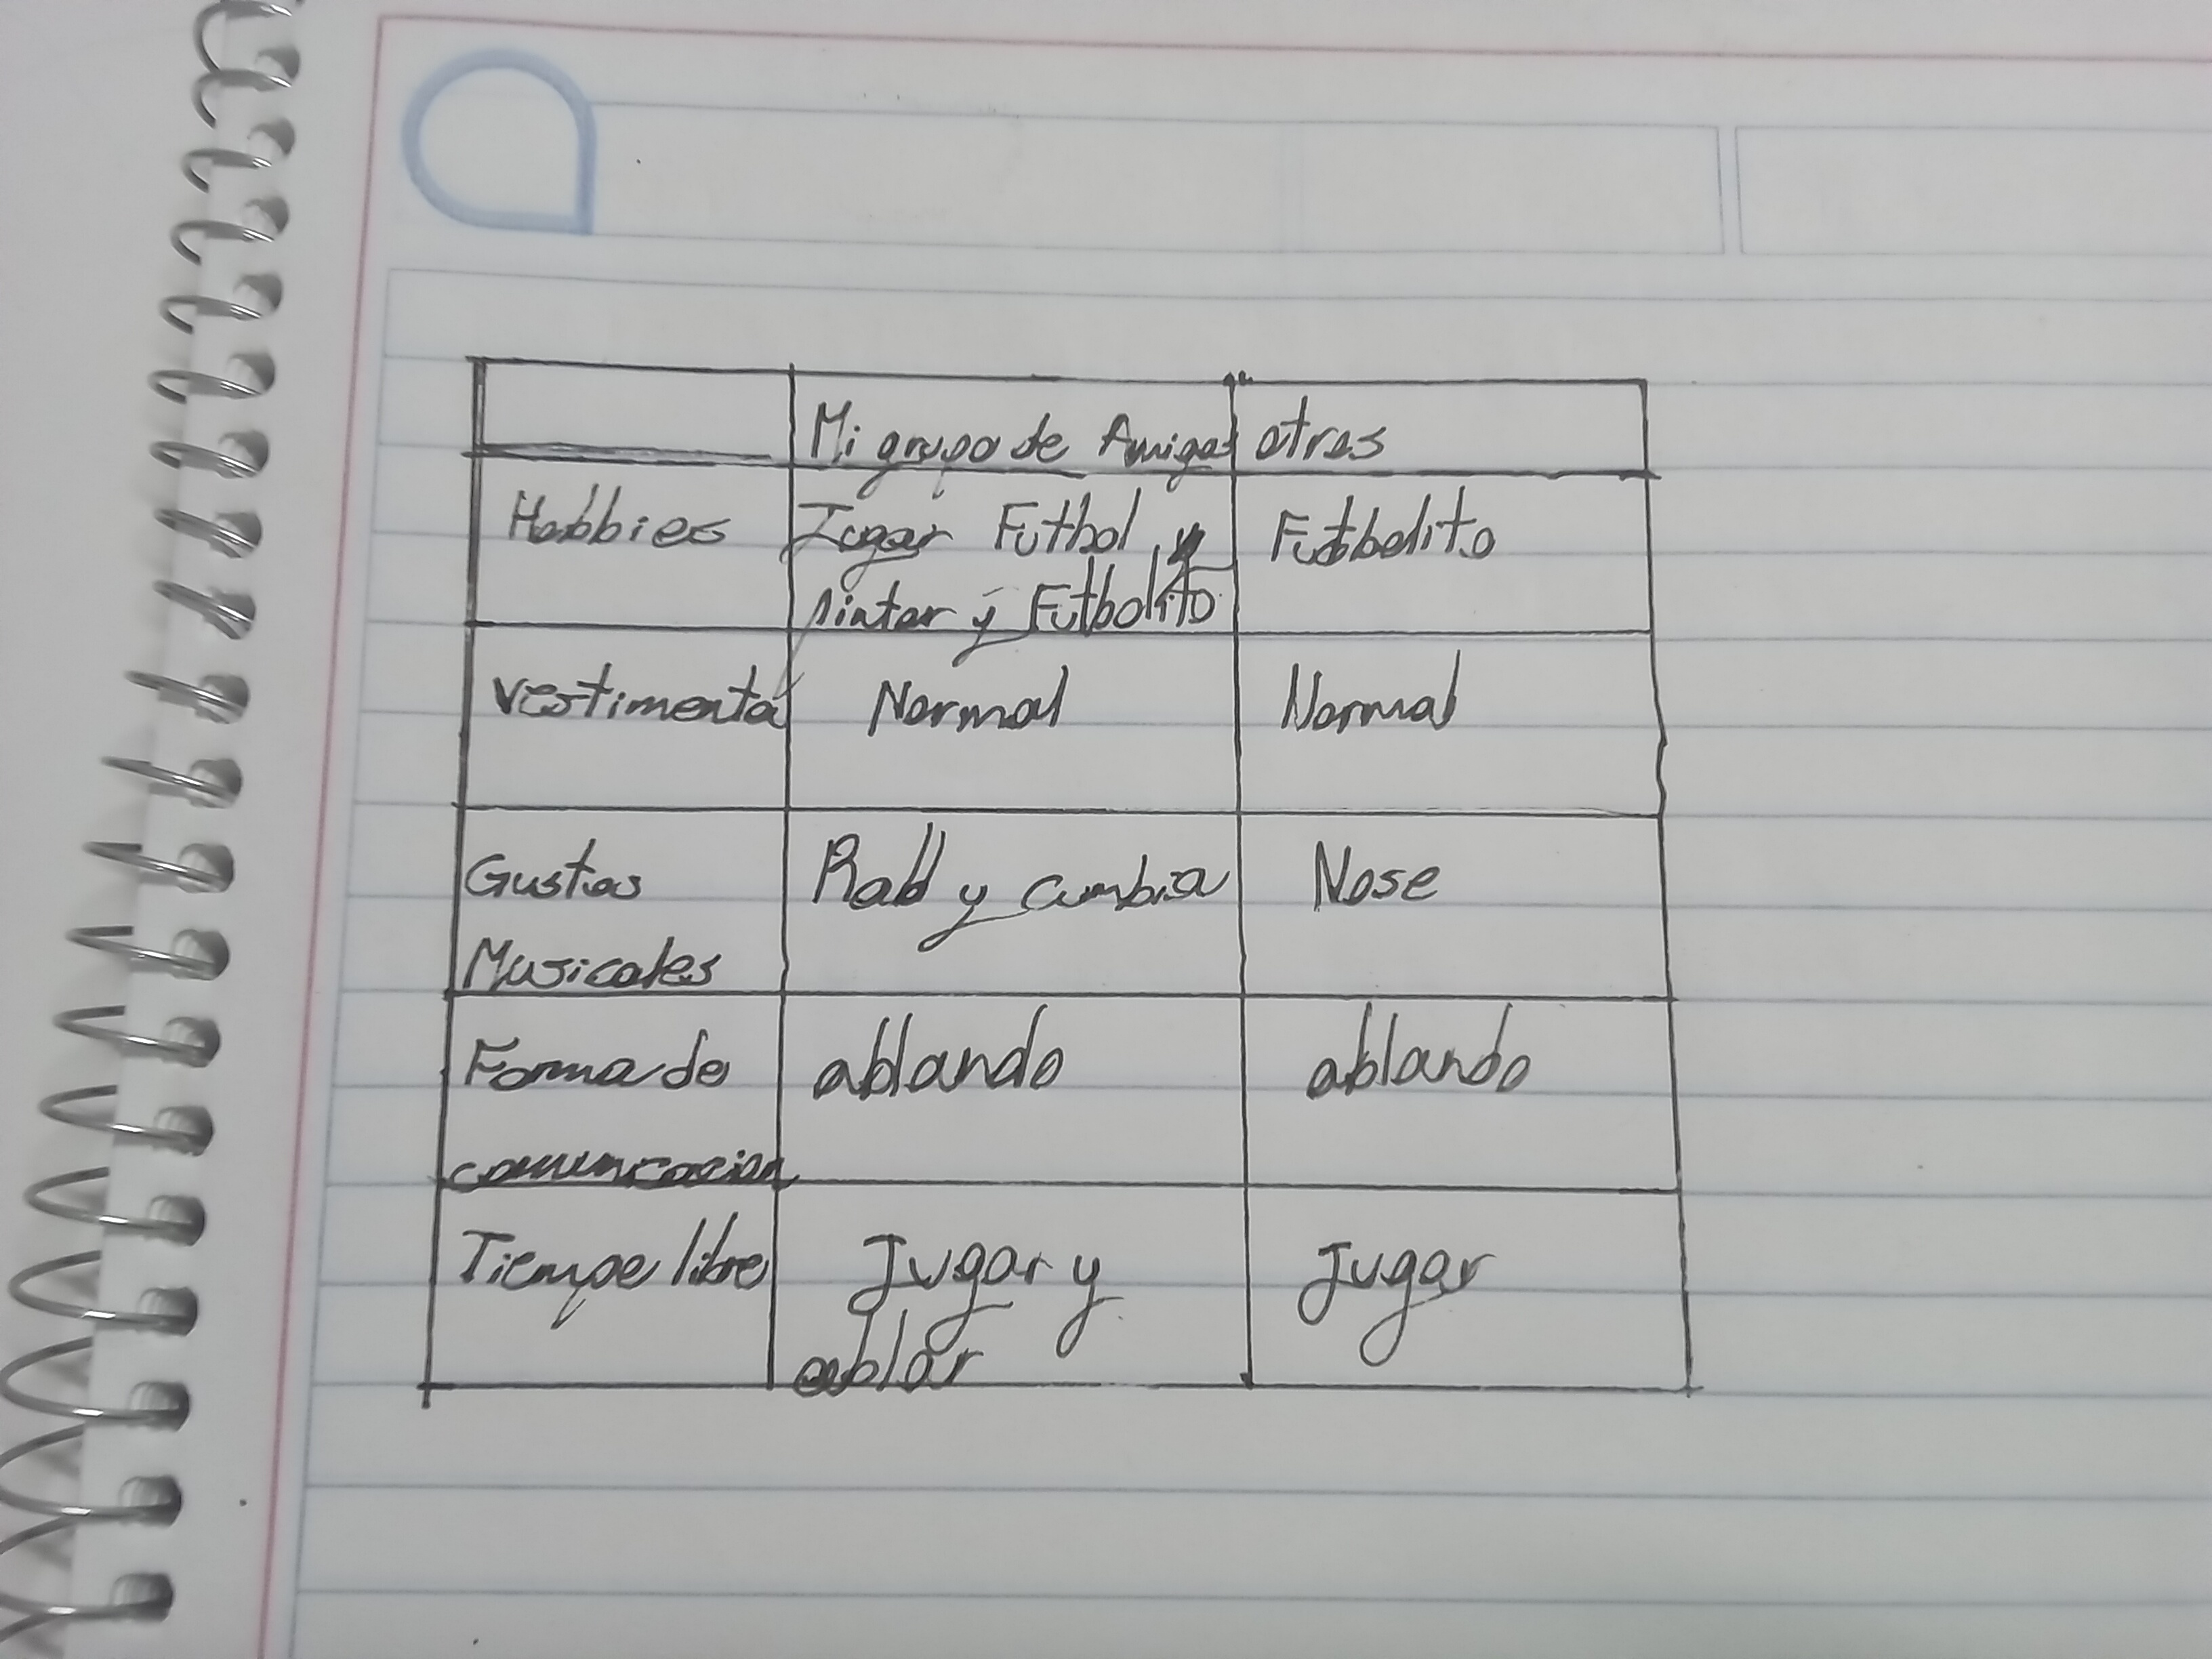 Mi grupo de Amigos otros
Hobbies Jugar Futbol y Futbolito
pintar y Futbolito
Vestimenta Normal Normal
Gustos Rab y cumbia Nose
Musicales
Forma de ablando ablando
comunicacion
Tiempo libre Jugar y Jugar
ablar